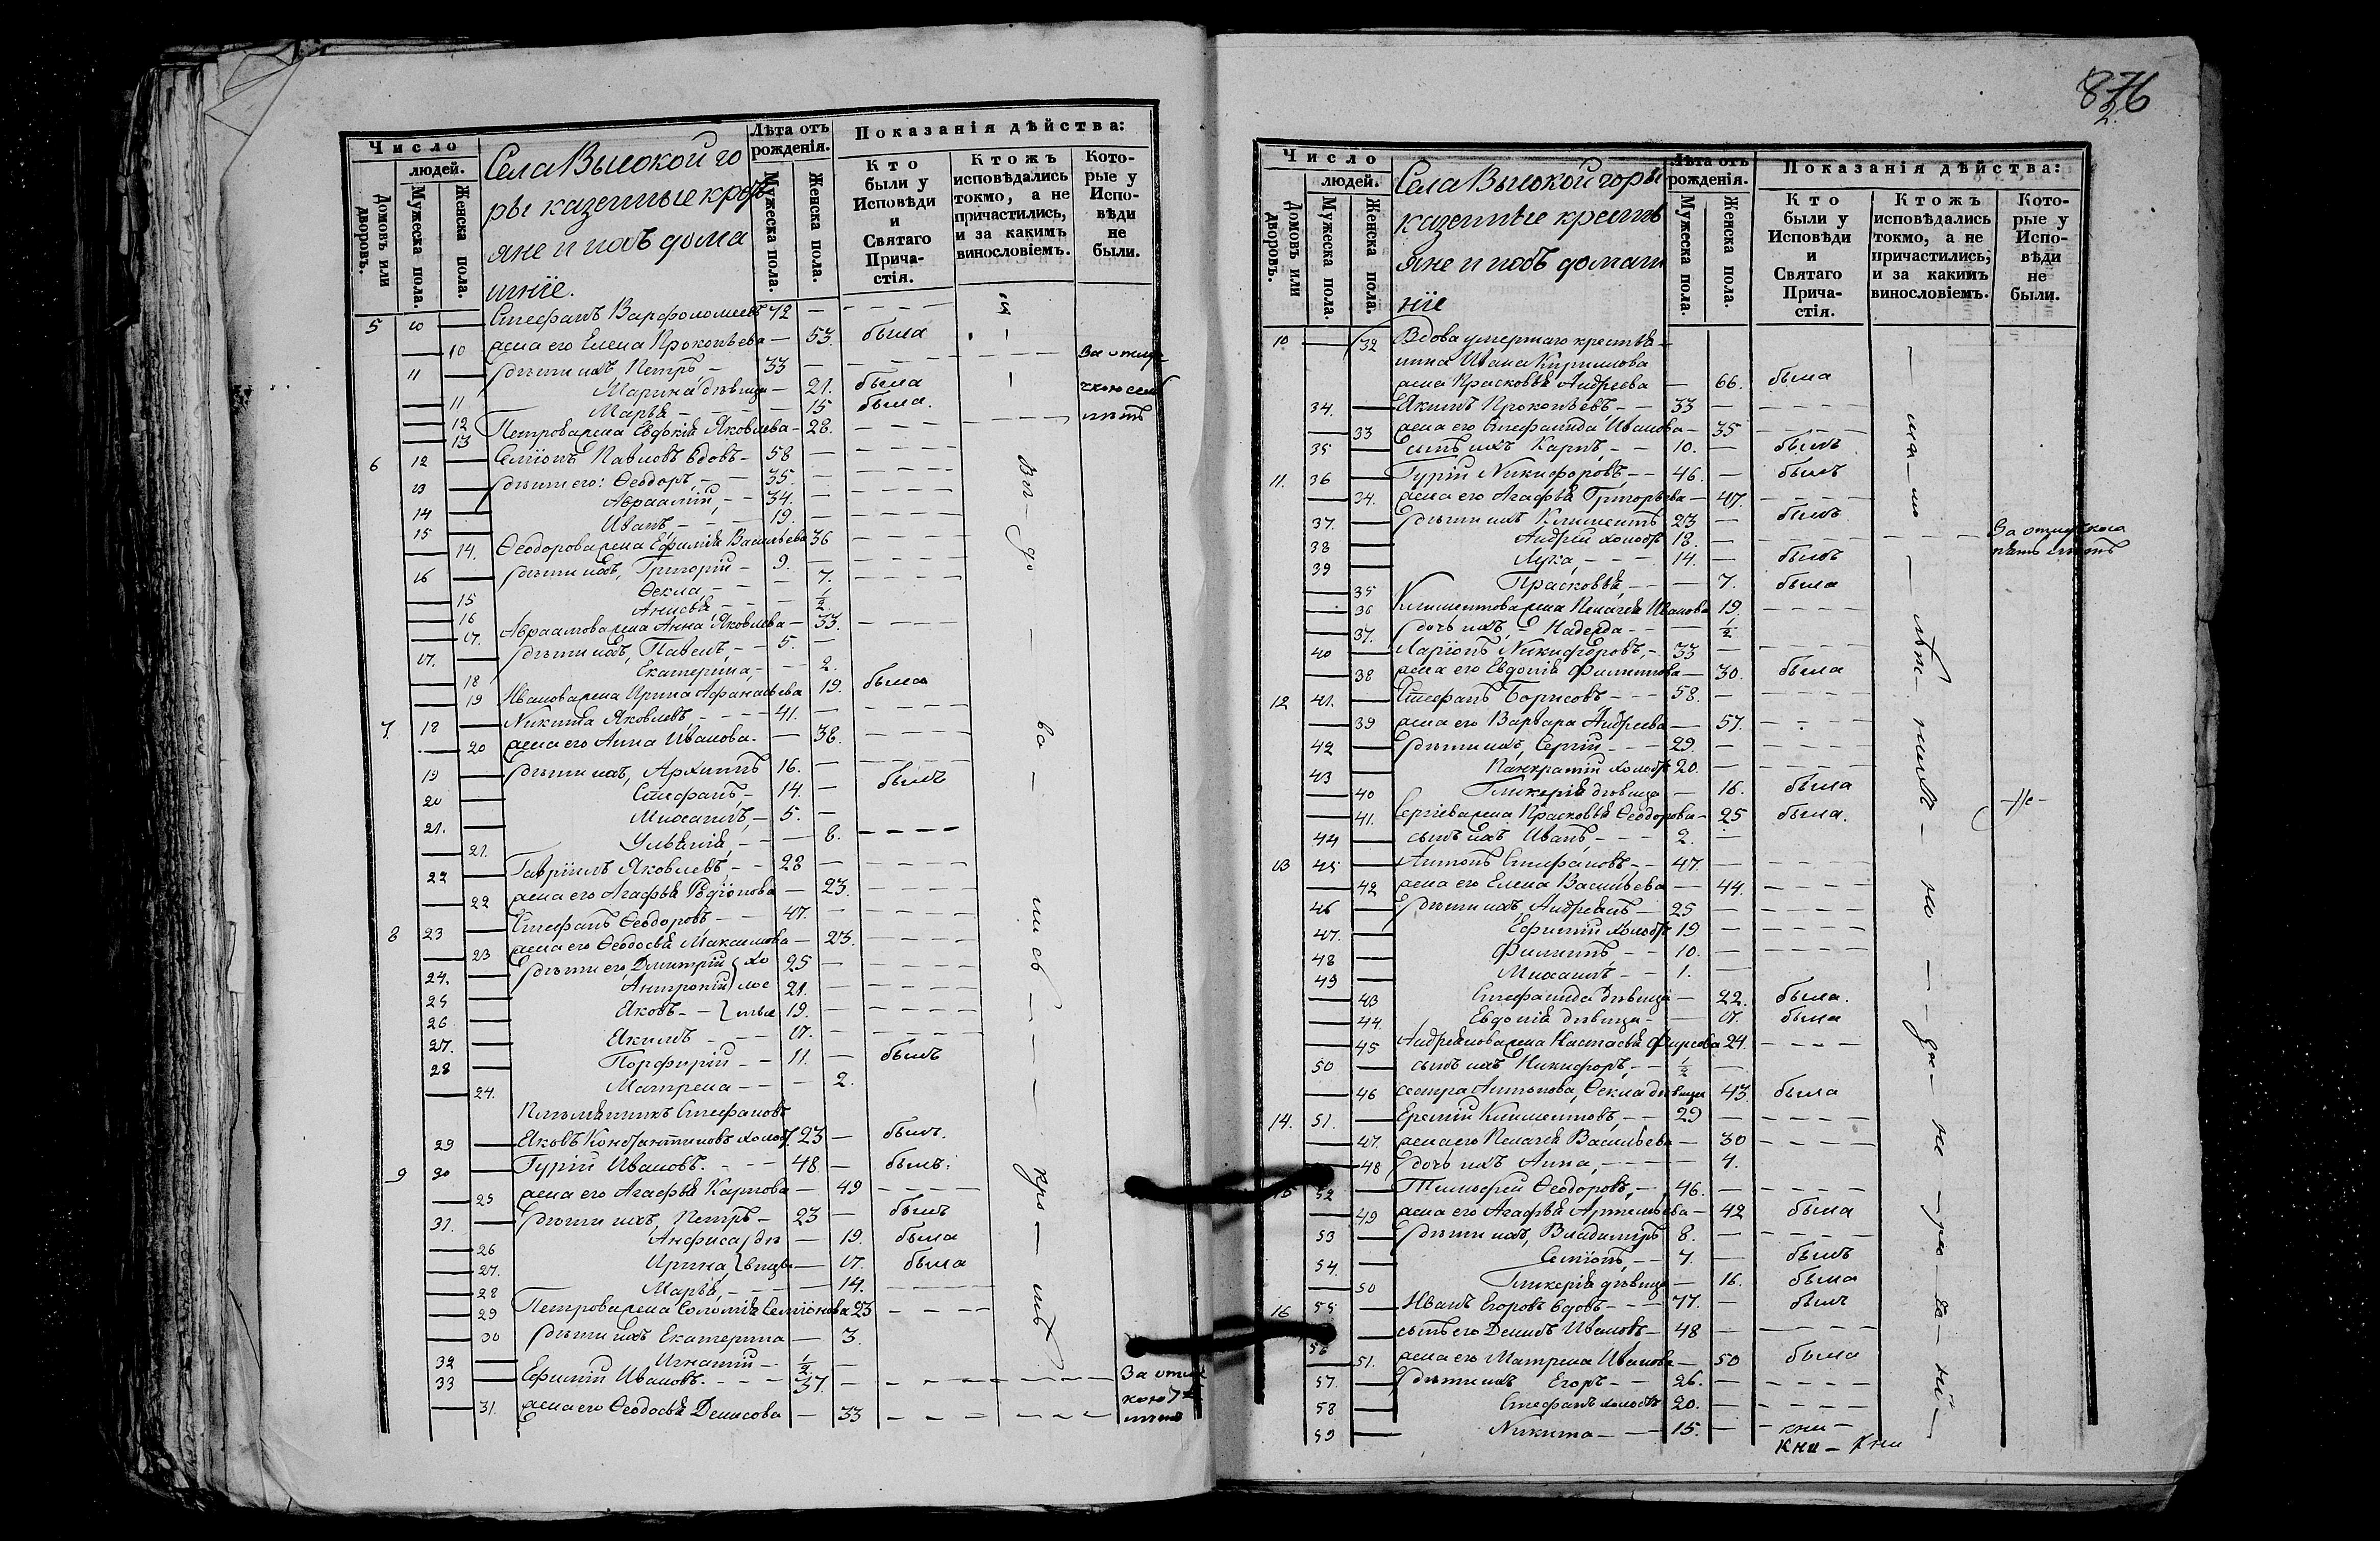 Число
людей.
Домовъ или дворовъ.
Мужеска пола.
Женска пола.
Села Высокой го
ры казенные кресть
яне и ихъ дома
шніе.
Лѣта отъ рожденія.
Мужеска пола.
Женска пола.
Показанія дѣйства:
Кто были у Исповѣди и Святаго Причастія.
Ктожъ исповѣдались токмо, а не причастились, и за какимъ винословіемъ.
Которые у Исповѣди не были.
5 10 — Стефанъ Варфоломеевъ 72 —
— 10 жена его Елена Прокопьева — 53. была
11 — дѣти ихъ Петръ — 33 —
— 11 Марина дѣвица — 21. была
— 12 Марья — 15 была.
— 13 Петрова жена Евдокія Яковлева — 28.
6 12 — Семіонъ Павловъ вдовъ — 58 —
13 — дѣти его: Ѳеодоръ, — 35. —
14 — Авраамій, — 34. —
15 — Иванъ, — 19. —
— 14. Ѳеодорова жена Ефимія Васильева 36
16 — дѣти ихъ, Григорій — 9. —
— 15 Ѳекла — 7.
— 16 Анисья — ½
— 17. Авраамова жена Анна Яковлева — 33.
17. — дѣти ихъ, Павелъ, — 5. —
— 18 Екатерина, — 2.
— 19 Иванова жена Ирина Афанасьева 19. была
7. 18 — Никита Яковлевъ, — 41. —
— 20 жена его Анна Иванова. — 38.
19 — дѣти ихъ, Архиппъ 16. —
20 — Стефанъ, — 14. — былъ
21. — Михаилъ, — 5. —
— 21. Ульянія, — 8.
22 — Гавріилъ Яковлевъ, — 28 —
— 22 жена его Агафья Родіонова — 23.
8 23 — Стефанъ Ѳеодоровъ — 47. —
— 23 жена его Ѳеодосья Максимова — 23.
24. — дѣти его, Димитрій } хо 25 —
25 — Антроній } лос 21. —
26 — Яковъ — } тые 19. —
27. — Якимъ — 17. —
28 — Порфирій — 11. — былъ
— 24. Матрена — 2.
Племянникъ Стефановъ
29 — Яковъ Константиновъ холост. 23 — былъ.
9 30 — Гурій Ивановъ. — 48 — былъ.
— 25 жена его Агафья Карпова — 49
31. — дѣти ихъ, Петръ — 23 — былъ
— 26 Анфиса } дѣ — 19. была
— 27. Ирина } вицы — 17. была
— 28 Марья, — 14.
— 29 Петрова жена Соломія Семіонова 23
— 30 дѣти ихъ Екатерина — 3.
32 — Игнатій — ½ —
33 — Ефимій Ивановъ. — 37. —
— 31. жена его Ѳеодосья Денисова — 33
876
2.
Число
людей.
Домовъ или дворовъ.
Мужеска пола.
Женска пола.
Села Высокой горы
казенные кресть
яне и ихъ домаш
ніе
Лѣта отъ рожденія.
Мужеска пола.
Женска пола.
Показанія дѣйства:
Кто были у Исповѣди и Святаго Причастія.
Ктожъ исповѣдались токмо, а не причастились, и за какимъ винословіемъ.
Которые у Исповѣди не были.
10 — 32 Вдова умершаго крестья
нина Ивана Кириллова
жена Прасковья Андреева — 66. была
34. — Якимъ Прокопьевъ — 33 —
— 33 жена его Стефанида Иванова — 35
35 — сынъ ихъ Карпъ, — 10. — былъ
11. 36 — Гурій Никифоровъ — 46. — былъ
— 34. жена его Агафья Григорьева — 47.
37. — дѣти ихъ Климентъ 23 — былъ
38 — Андрей холост 18. —
39 — Лука, — 14. — былъ
— 35 Прасковья, — 7. была
— 36 Климентова жена Пелагея Иванова 19.
— 37. дочь ихъ, Надежда — ½
40 — Ларіонъ Никифоровъ, — 33 —
— 38 жена его Евдокія Филиппова — 30. была
12 41. — Стефанъ Борисовъ, — 58. —
— 39 жена его Варвара Андреева — 57.
42 — дѣти ихъ, Сергій — 29. —
43 — Панкратій холост 20. —
— 40 Гликерія дѣвица — 16. была
— 41. Сергіева жена Прасковья Ѳеодорова — 25 была.
44 — сынъ ихъ Иванъ, — 2. —
13 45 — Антонъ Стефановъ — 47. —
— 42 жена его Елена Васильева — 44.
46 — дѣти ихъ, Андреянъ — 25 —
47. — Ефимій холост 19 —
48 — Филиппъ, — 10. —
49 — Михаилъ — 1. —
— 43 Стефанида дѣвица — 22. была.
— 44. Евдокія дѣвица — 17. была
— 45 Андреянова жена Настасья Фирсова 24.
50 — сынъ ихъ Никифоръ, — ½ —
— 46 сестра Антонова, Ѳекла дѣвица 43. была
14. 51. — Еремій Климентовъ, — 29 —
— 47. жена его Пелагея Васильева — 30
— 48 дочь ихъ Анна, — 4.
15 52 — Тимофей Ѳеодоровъ, — 46. —
— 49 жена его Агафья Артемьева — 42 была
53 — дѣти ихъ, Владимиръ 8. —
54. — Семіонъ, — 7. — былъ
— 50 Гликерія дѣвица — 16. была
16 55 — Иванъ Егоровъ вдовъ — 77. — былъ
56 — сынъ его Демидъ Ивановъ — 48 —
— 51. жена его Матрена Иванова — 50 была
57. — дѣти ихъ Егоръ — 26. —
58 — Стефанъ холостъ 20. —
59 — Никита — 15. —